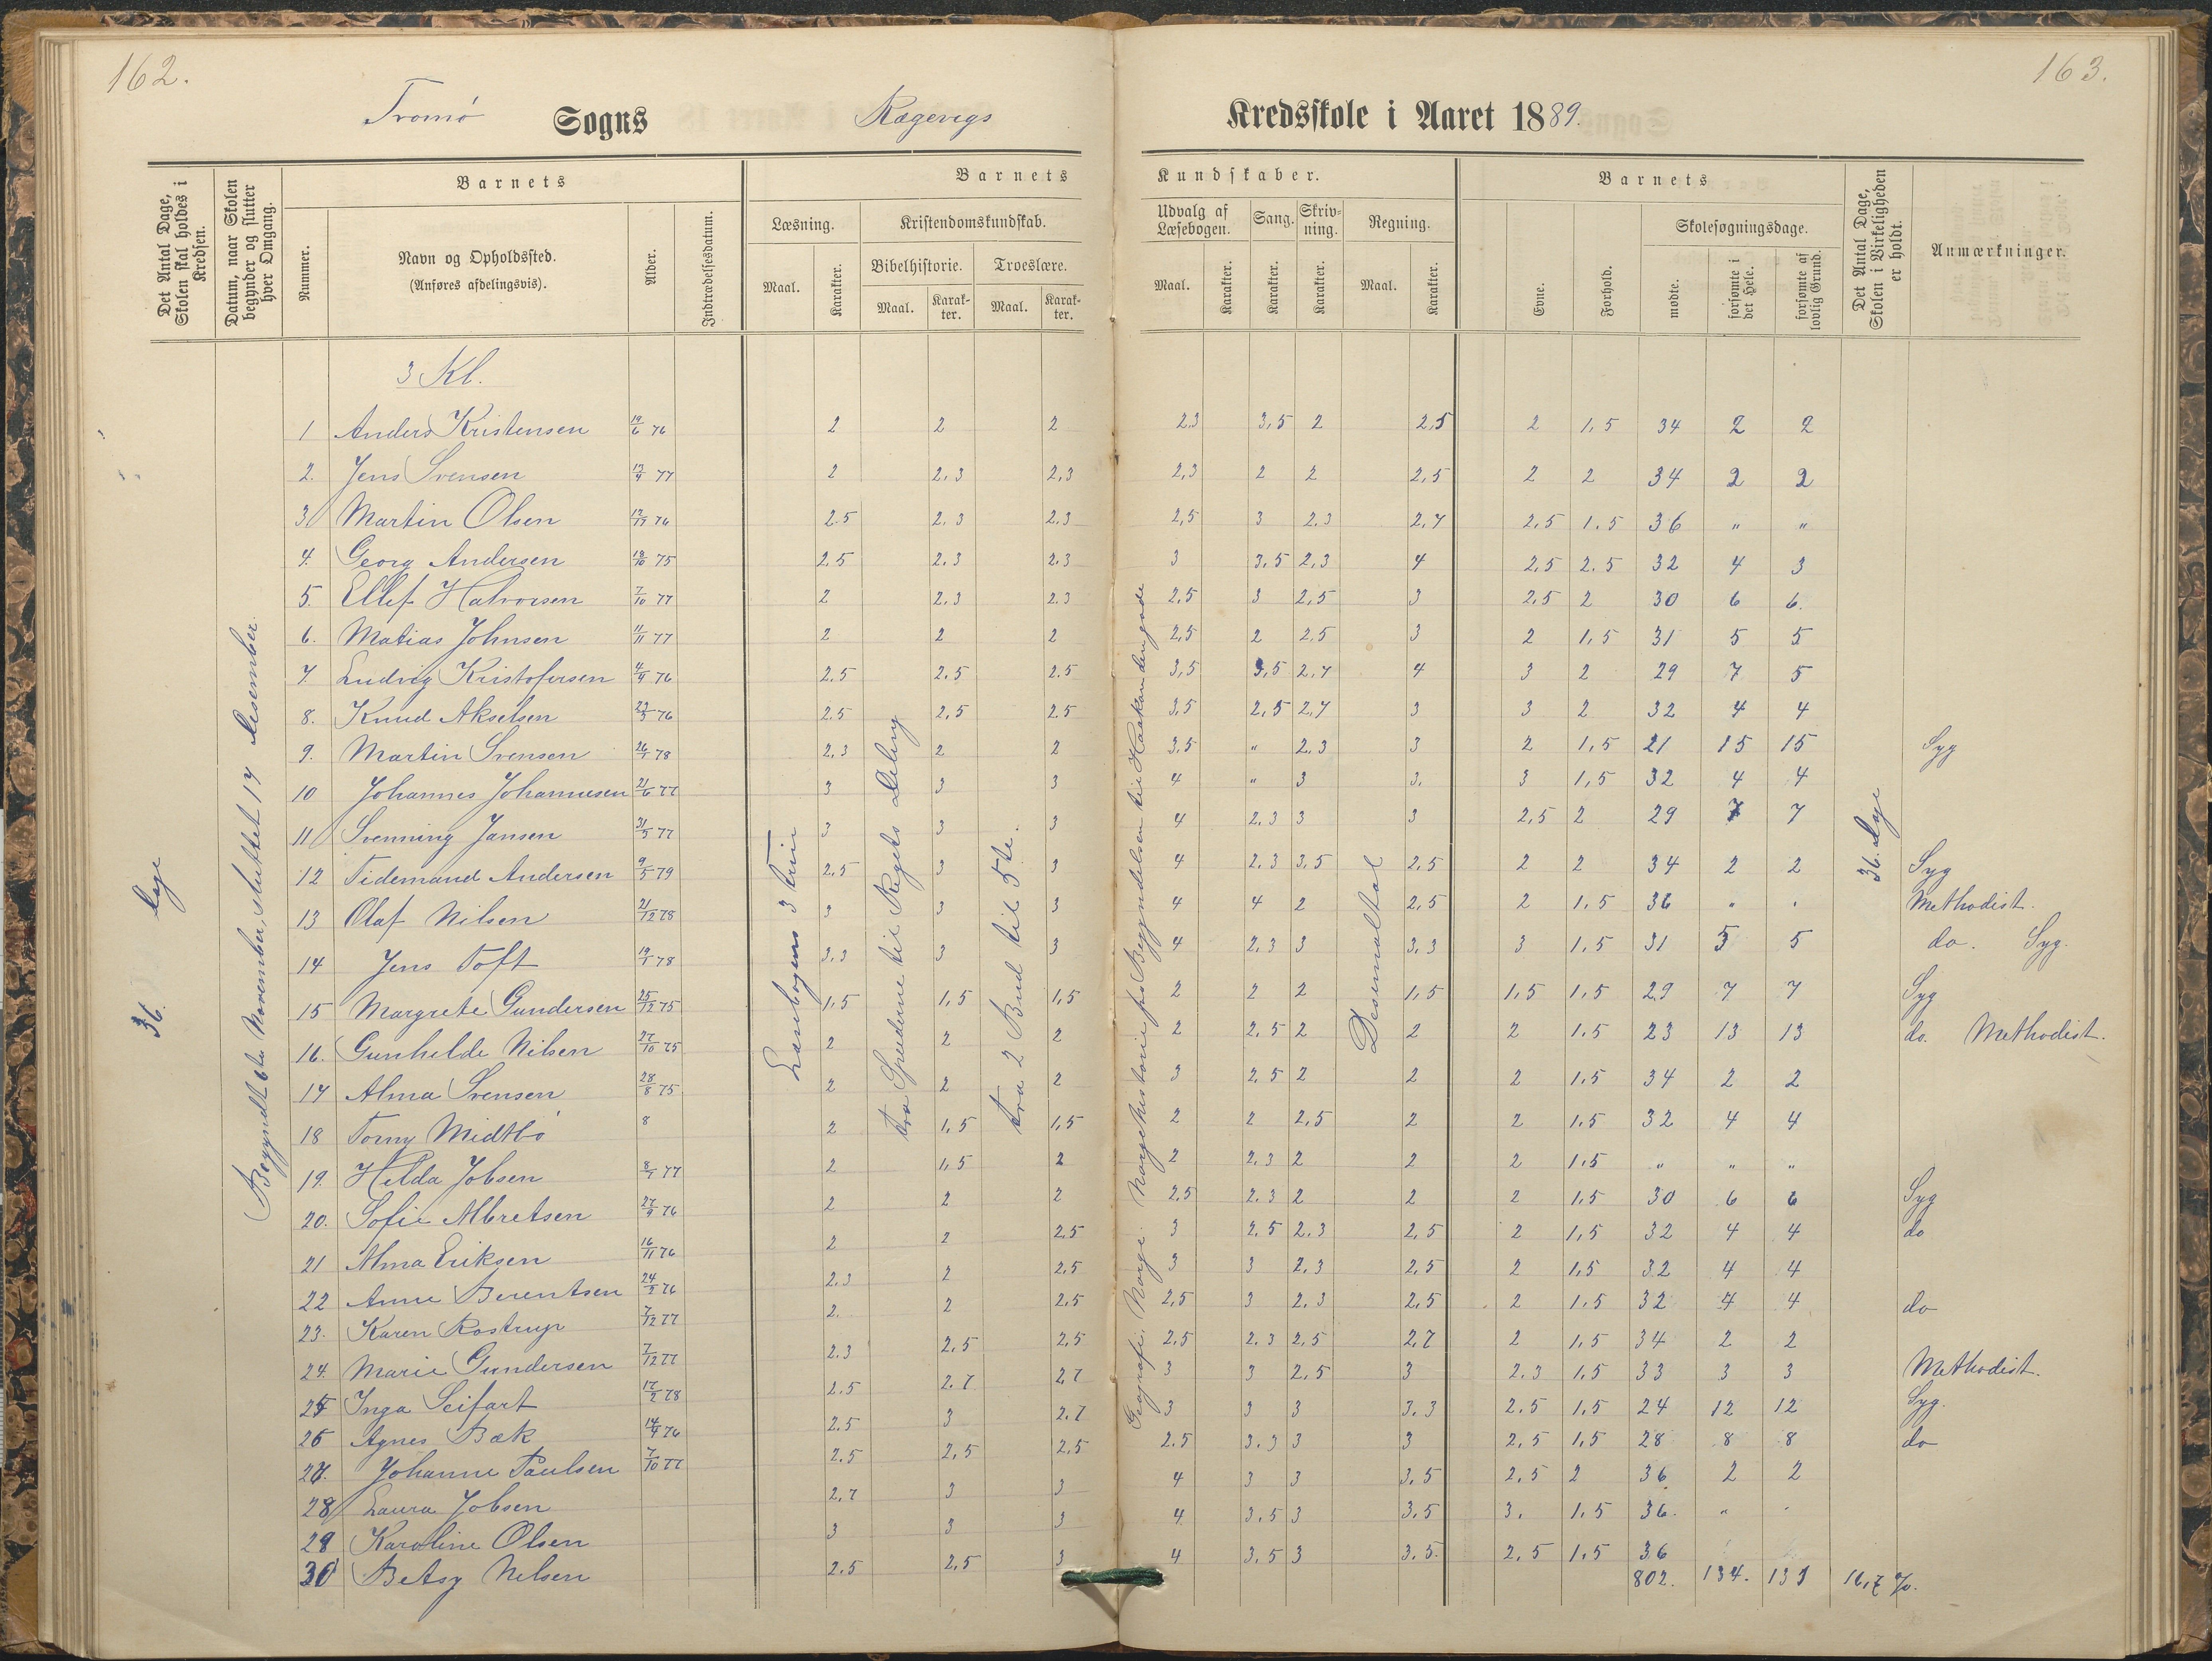 162.
163.
Tromø Sogns Rægevigs Kredsskole i Aaret 1889.
Det Antal Dage, Skolen skal holdes i Kredsen.
Datum, naar Skolen begynder og slutter hver Omgang.
Barnets
Nummer.
Navn og Opholdssted.
(Anføres afdelingsvis).
Alder.
Indtrædelsesdatum.
Barnets Kundskaber.
Læsning.
Maal.
Karakter.
Kristendomskundskab.
Bibelhistorie.
Maal.
Karakter.
Troeslære.
Maal.
Karakter.
Udvalg af Læsebogen.
Maal.
Karakter.
Sang.
Karakter.
Skrivning.
Karakter.
Regning.
Maal.
Karakter.
Barnets
Evne.
Forhold.
Skolesøgningsdage.
mødte.
forsømte i det Hele.
forsømte af lovlig Grund.
Det Antal Dage, Skolen i Virkeligheden er holdt.
Anmærkninger.
36. Dage
Begyndt 6te November, sluttet 17 Desember.
Læsebogens 3 Trin
Fra Greederne til Rigets Deling
Fra 2 Bud til 5te.
Geografi. Norge. Norgeshistorie fra Begyndelsen til Haakon den gode
Desemaltal
36. Dage
3 Kl.
1 Anders Kristensen 19/6 76 2 2 2 2,3 3,5 2 2,5 2 1,5 34 2 2
2. Jens Svensen 13/9 77 2 2,3 2,3 2,3 2 2 2,5 2 2 34 2 2
3 Martin Olsen 76 2.5 2.3 2.3 2,5 3 2.3 2,7 2,5 1.5 36 " "
4. Georg Andersen 18/10 75 2,5 2.3 2.3 3 3,5 2,3 4 2,5 2.5 32 4 3
5. Ellef Halvorsen 7/10 77 2 2.3 2.3 2,5 3 2,5 3 2,5 2 30 6 6.
6. Matias Johnsen 11/11 77 2 2 2 2,5 2 2,5 3 2 1,5 31 5 5
7. Ludvig Kristofersen 4/9 76 2.5 2.5 2.5 3,5 3,5 2,7 4 3 2 29 7 5
8. Knud Akselsen 23/3 76 2.5 2,5 2.5 3,5 2,5 2,7 3 3 2 32 4 4
9. Martin Svensen 26/1 78 2,3 2 2 3,5 " 2.3 3 2 1,5 21 15 15 Syg
10 Johannes Johannesen 21/6 77 3 3 3 4 " 3 3. 3 1,5 32 4 4
11 Svenning Jansen 31/5 77 3 3 3 4 2.3 3 3 2,5 2 29 7 7
12 Tidemand Andersen 9/5 79 2,5 3 3 4 2.3 3,5 2,5 2 2 34 2 2 Syg
13 Olaf Nilsen 21/12 78 3 3 3 4 4 2 2,5 2 1,5 36 " " Methodist.
14 Jens Toft 19/1 78 3,3 3 3 4 2,3 3 3,3 3 1,5 31 5 5 do. Syg.
15 Margrete Gundersen 25/12 75 1,5 1,5 1,5 2 2 2 1,5 1,5 1,5 29 7 7 Syg
16. Gunhilde Nilsen 27/10 75 2 2 2 2 2,5 2 2 2 1.5 23 13 13 do. Methodist.
17 Alma Svensen 28/8 75 2 2 2 3 2,5 2 2 2 1,5 34 2 2
18 Torny Midtbø 8 2 1,5 1,5 2 2 2,5 2 2 1,5 32 4 4
19. Hilda Jobsen 8/1 77 2 1,5 2 2 2.3 2 2 2 1,5 " " "
20. Sofie Albretsen 27/9 76 2 2 2 2,5 2.3 2 2 2 1,5 30 6 6 Syg
21 Alma Eriksen 16/11 76 2 2 2.5 3 2.5 2.3 2,5 2 1,5 32 4 4 do
22 Anne Berentsen 24/2 76 2.3 2 2,5 3 3 2,3 2,5 2 1,5 32 4 4
23. Karen Rostrup 7/12 77 2. 2 2,5 2,5 3 2.3 2,5 2 1,5 32 4 4 do
24. Marie Gundersen 7/12 77 2.3 2,5 2,5 2,5 2.3 2,5 2,7 2 1,5 34 2 2
25 Inga Seifart 17/2 78 2.5 2.7 2,7 3 3 2,5 3 2.3 1,5 33 3 3 Methodist.
26 Agnes Bæk 14/4 76 2.5 3 2.7 3 3 3 3.3 2.5 1,5 24 12 12 Syg.
27. Johanne Paulsen 7/10 77 2.5 2,5 2,5 2.5 3.3 3 3 2,5 1,5 28 8 8 do
28 Laura Jobsen 2,7 3 3 4 3 3 3,5 2,5 2 36 2 2
29 Karoline Olsen 3 3 3 4 3,5 3 3.5 3. 1,5 36. " "
30 Betsy Nilsen 2.5 2,5 3 4 3,5 3 3.5. 2,5 1,5 36
802. 134. 131 16,7 %.